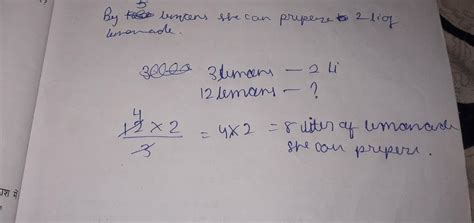 3
By lemons she can prepere 2 li of
lemonade.
3 lemons — 2 li
12 lemons — ?
4
12 × 2 = 4 × 2 = 8 liter of lemonade
3
she can prepere.